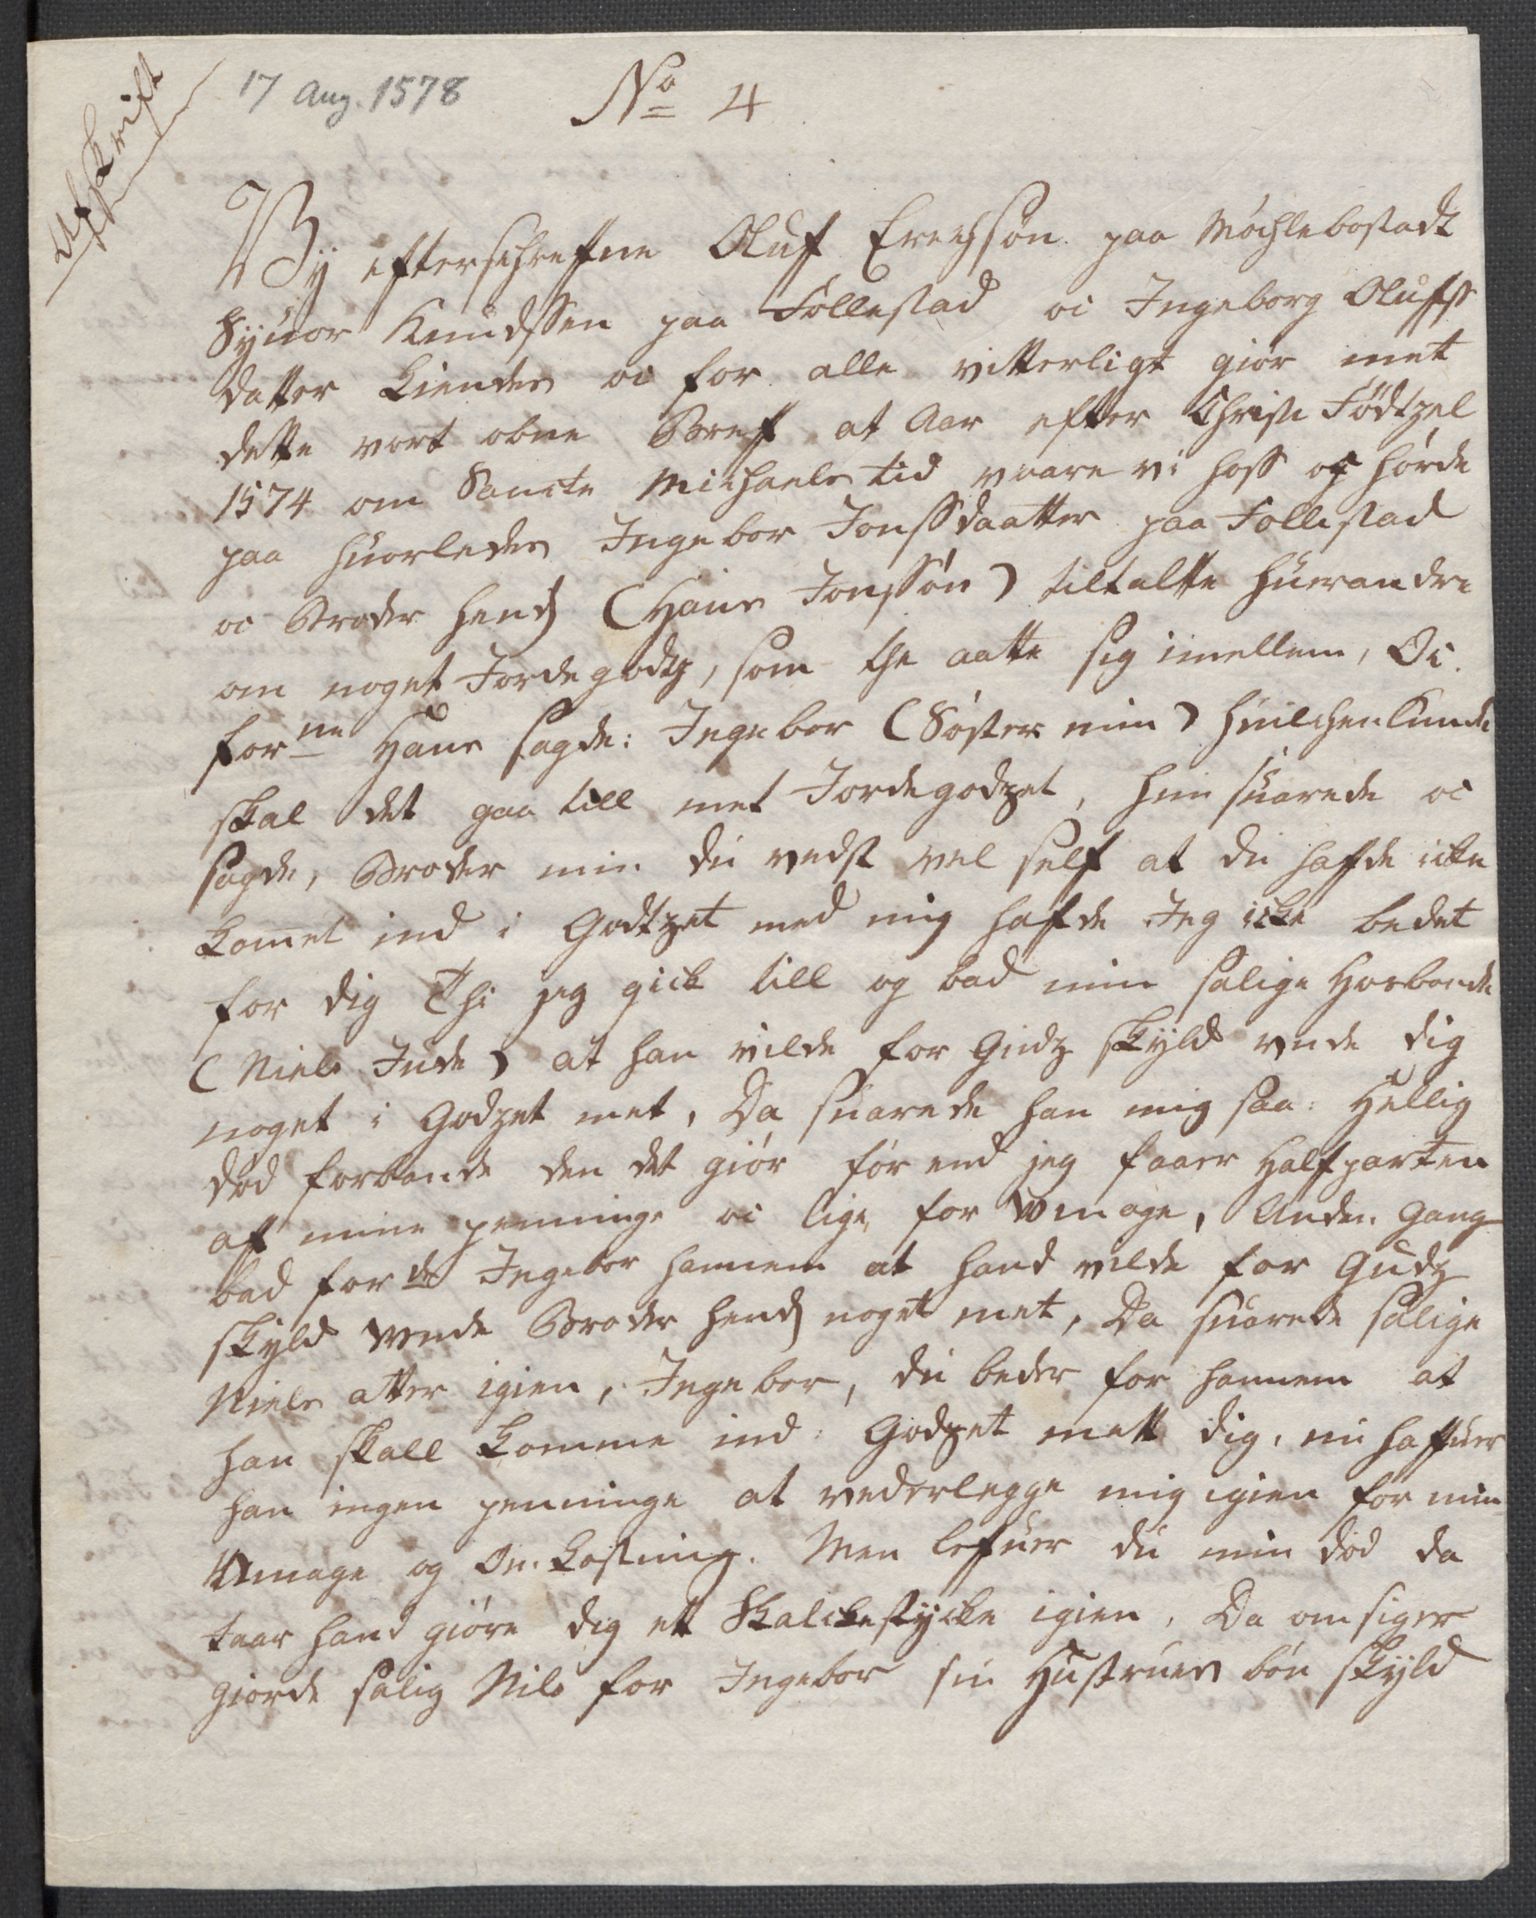 Afskrift
17 Aug. 1578
No 4
Vy efterschreffne Oluf Erechsøn paa Møchlebostadt
Syuor Knudssen paa Føllestad oc Ingeborg Olufss
datter kiendes oc for alle vitterligt giør met
dette vort obne Breff at Aar efter Christi Fødtzel
1574 om Sancte Michaels tid vaare vi hoss og hørde
paa huorledes Ingebor Jonssdaatter paa Follestad
oc Broder hends (Hans Jonssøn) tiltalte huerandre
om noget Jordegodtz, som the aatte sig imellem, Oc
forne Hans sagde: Ingebor (Søster min) huilchenlunde
skal det gaa till met Jordegodzet, hun suarede oc
sagde, Broder min du vedst vel self at du hafde icke
kommet ind i Godtzet med mig hafde Jeg icke bedet
for dig Thi jeg gick till og bad min salige Hosbonde
(Niels Jude) at han vilde for Gudz skyld vnde dig
noget i Godzet met, Da suarede han mig saa: Hellig
død forbande den det giør før end jeg faaer Halfparten
af mine penninge oc lige for Vmage, Anden Gang
bad forde Ingebor hannem at hand vilde for Gudz
skyld vnde Broder hends noget met, Da suarede salige
Niels atter igien, Ingebor, du beder for hannem at
han skall komme ind i Godzet mett dig, nu haffuer
han ingen penninge at vederlegge mig igien for min
Umage og Om kostning. Men lefuer du min død da
taar hand giøre dig ett Skalckestycke igien, Da omsiger
giorde salig Nils for Ingebor sin Hustrues bøn skyld